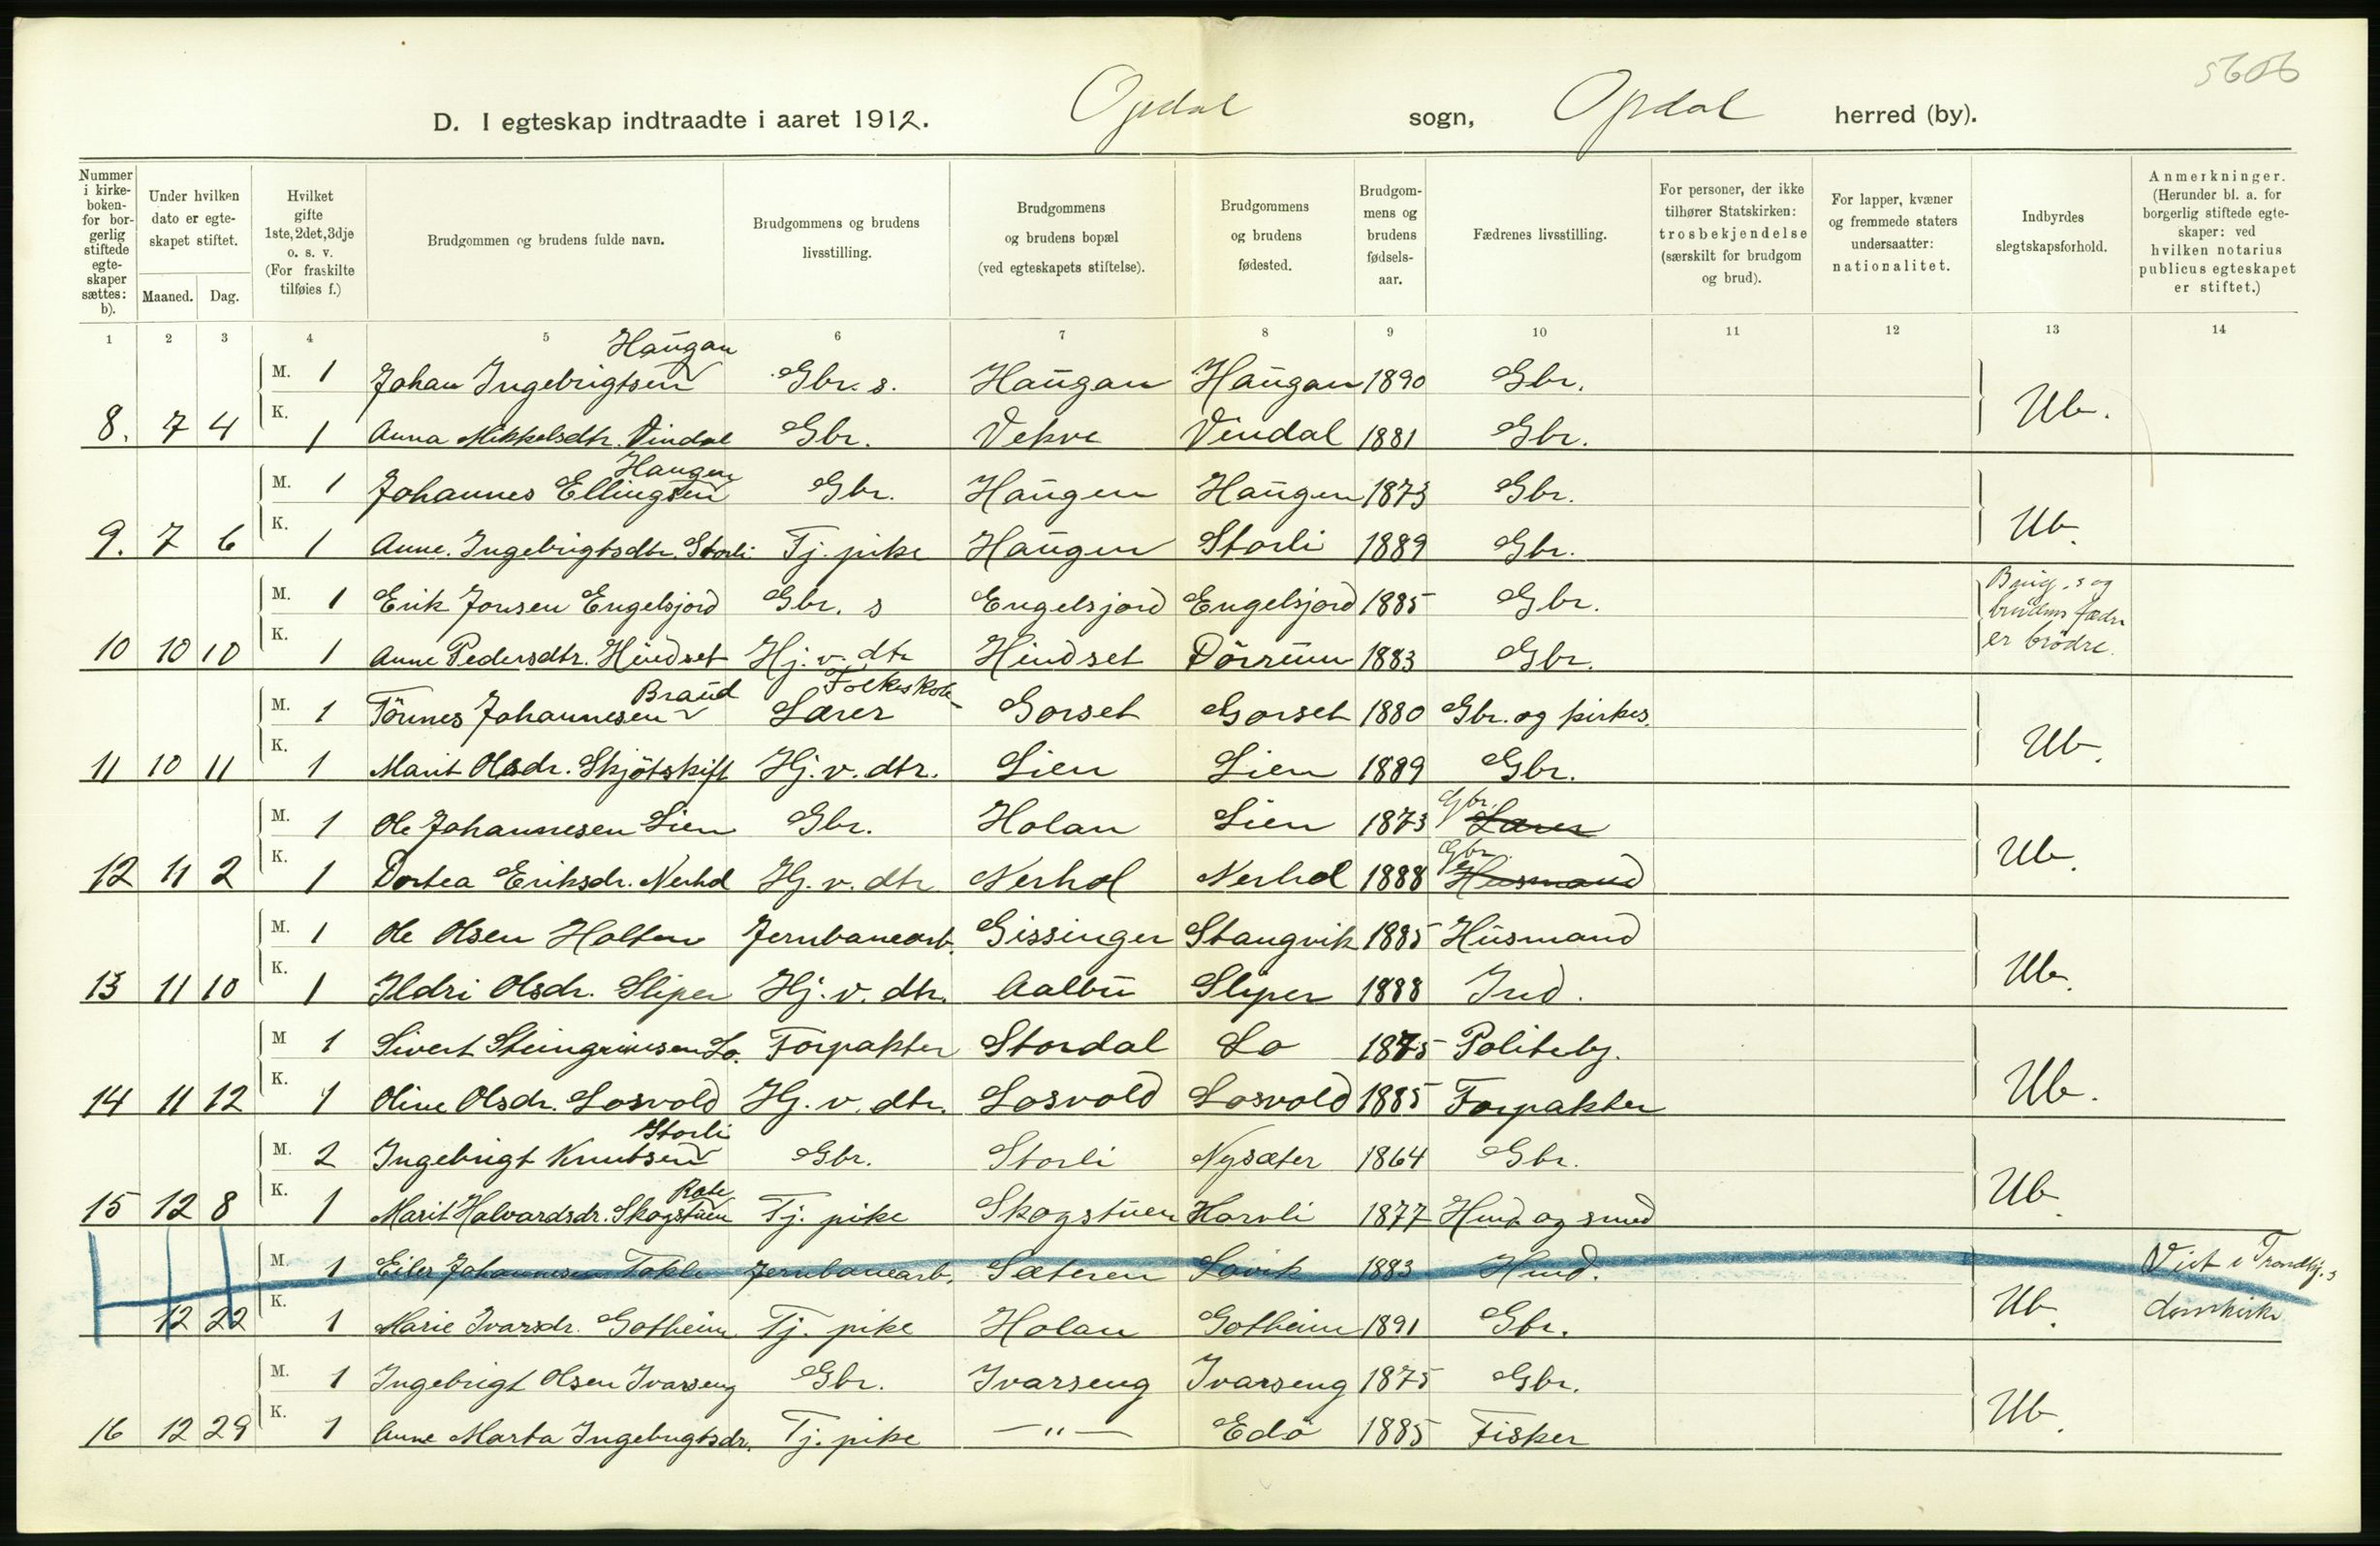 5606
D. I egteskap indtraadte i aaret 1912. Opdal sogn, Opdal herred (by).
Nummer i kirke-boken- for bor-gerlig stiftede egte-skaper sættes: b).
Under hvilken dato er egte-skapet stiftet.
Maaned. Dag.
Hvilket gifte 1ste, 2det, 3dje o. s. v. (For fraskilte tilføies f.)
Brudgommen og brudens fulde navn.
Brudgommens og brudens livsstilling.
Brudgommens og brudens bopæl (ved egteskapets stiftelse).
Brudgommens og brudens fødested.
Brudgom-mens og brudens fødsels-aar.
Fædrenes livsstilling.
For personer, der ikke tilhører Statskirken: trosbekjendelse (særskilt for brudgom og brud).
For lapper, kvæner og fremmede staters undersaatter: nationalitet.
Indbyrdes slegtskapsforhold.
Anmerkninger. (Herunder bl. a. for borgerlig stiftede egte-skaper: ved hvilken notarius publicus egteskapet er stiftet.)
1 2 3 4 5 6 7 8 9 10 11 12 13 14
Haugan
M. 1 Johan Ingebrigtsen Gbr. s. Haugan Haugan 1890 Gbr.
8. 7 4 K. 1 Anna Mikkelsdtr. Vindal Gbr. Vekve Vindal 1881 Gbr. Ub.
Haugen
M. 1 Johannes Ellingsen Gbr. Haugen Haugen 1873 Gbr.
9. 7 6 K. 1 Anne Ingebrigtsdtr. Storli Tj. pike Haugen Storli 1889 Gbr. Ub.
M. 1 Erik Jonsen Engelsjord Gbr. s Engelsjord Engelsjord 1885 Gbr. Brug.s og brudens fædre
10 10 10 K. 1 Anne Pedersdtr. Hindset Hj. v. dtr Hindset Dörrum 1883 Gbr. er brödre.
Braud Folkeskole
M. 1 Tönnes Johannesen Lærer Gorset Gorset 1880 Gbr. og kirkes.
11 10 11 K. 1 Marit Olsdr. Skjötskift Hj. v. dtr. Lien Lien 1889 Gbr. Ub.
M. 1 Ole Johannesen Lien Gbr. Holan Lien 1873 Gbr. Lærer
12 11 2 K. 1 Dortea Eriksdr. Nerhol Hj. v. dtr Nerhol Nerhol 1888 Gbr. Husmand Ub.
M. 1 Ole Olsen Holten Jernbanearb. Gissinger Stangvik 1885 Husmand
13 11 10 K. 1 Ildri Olsdr. Sliper Hj. v. dtr. Aalbu Sliper 1888 Ind. Ub.
M 1 Sivert Steingrimsen Lo. Forpakter Stordal Lo 1875 Politibtj.
14 11 12 K. 1 Oline Olsdr. Losvold Hj. v. dtr. Losvold Losvold 1885 Forpakter Ub.
Storli
M. 2 Ingebrigt Knutsen Gbr. Storli Nysæter 1864 Gbr.
Rate
15 12 8 K. 1 Marit Halvardsdr. Skogstuen Tj. pike Skogstuen Horvli 1877 Hmd og smed Ub.
M. 1 Eiler Johannesen Takle Jernbanearb. Sæteren Lavik 1883 Hmd. Viet i Trondhj.s
12 22 K. 1 Marie Ivarsdr. Gotheim Tj. pike Holan Gotheim 1891 Gbr. Ub. domkirke
M. 1 Ingebrigt Olsen Ivarseng Gbr. Ivarseng Ivarseng 1875 Gbr.
16 12 29 K. 1 Anne Marta Ingebrigtsdr. Tj. pike — " — Edö 1885 Fisker Ub.